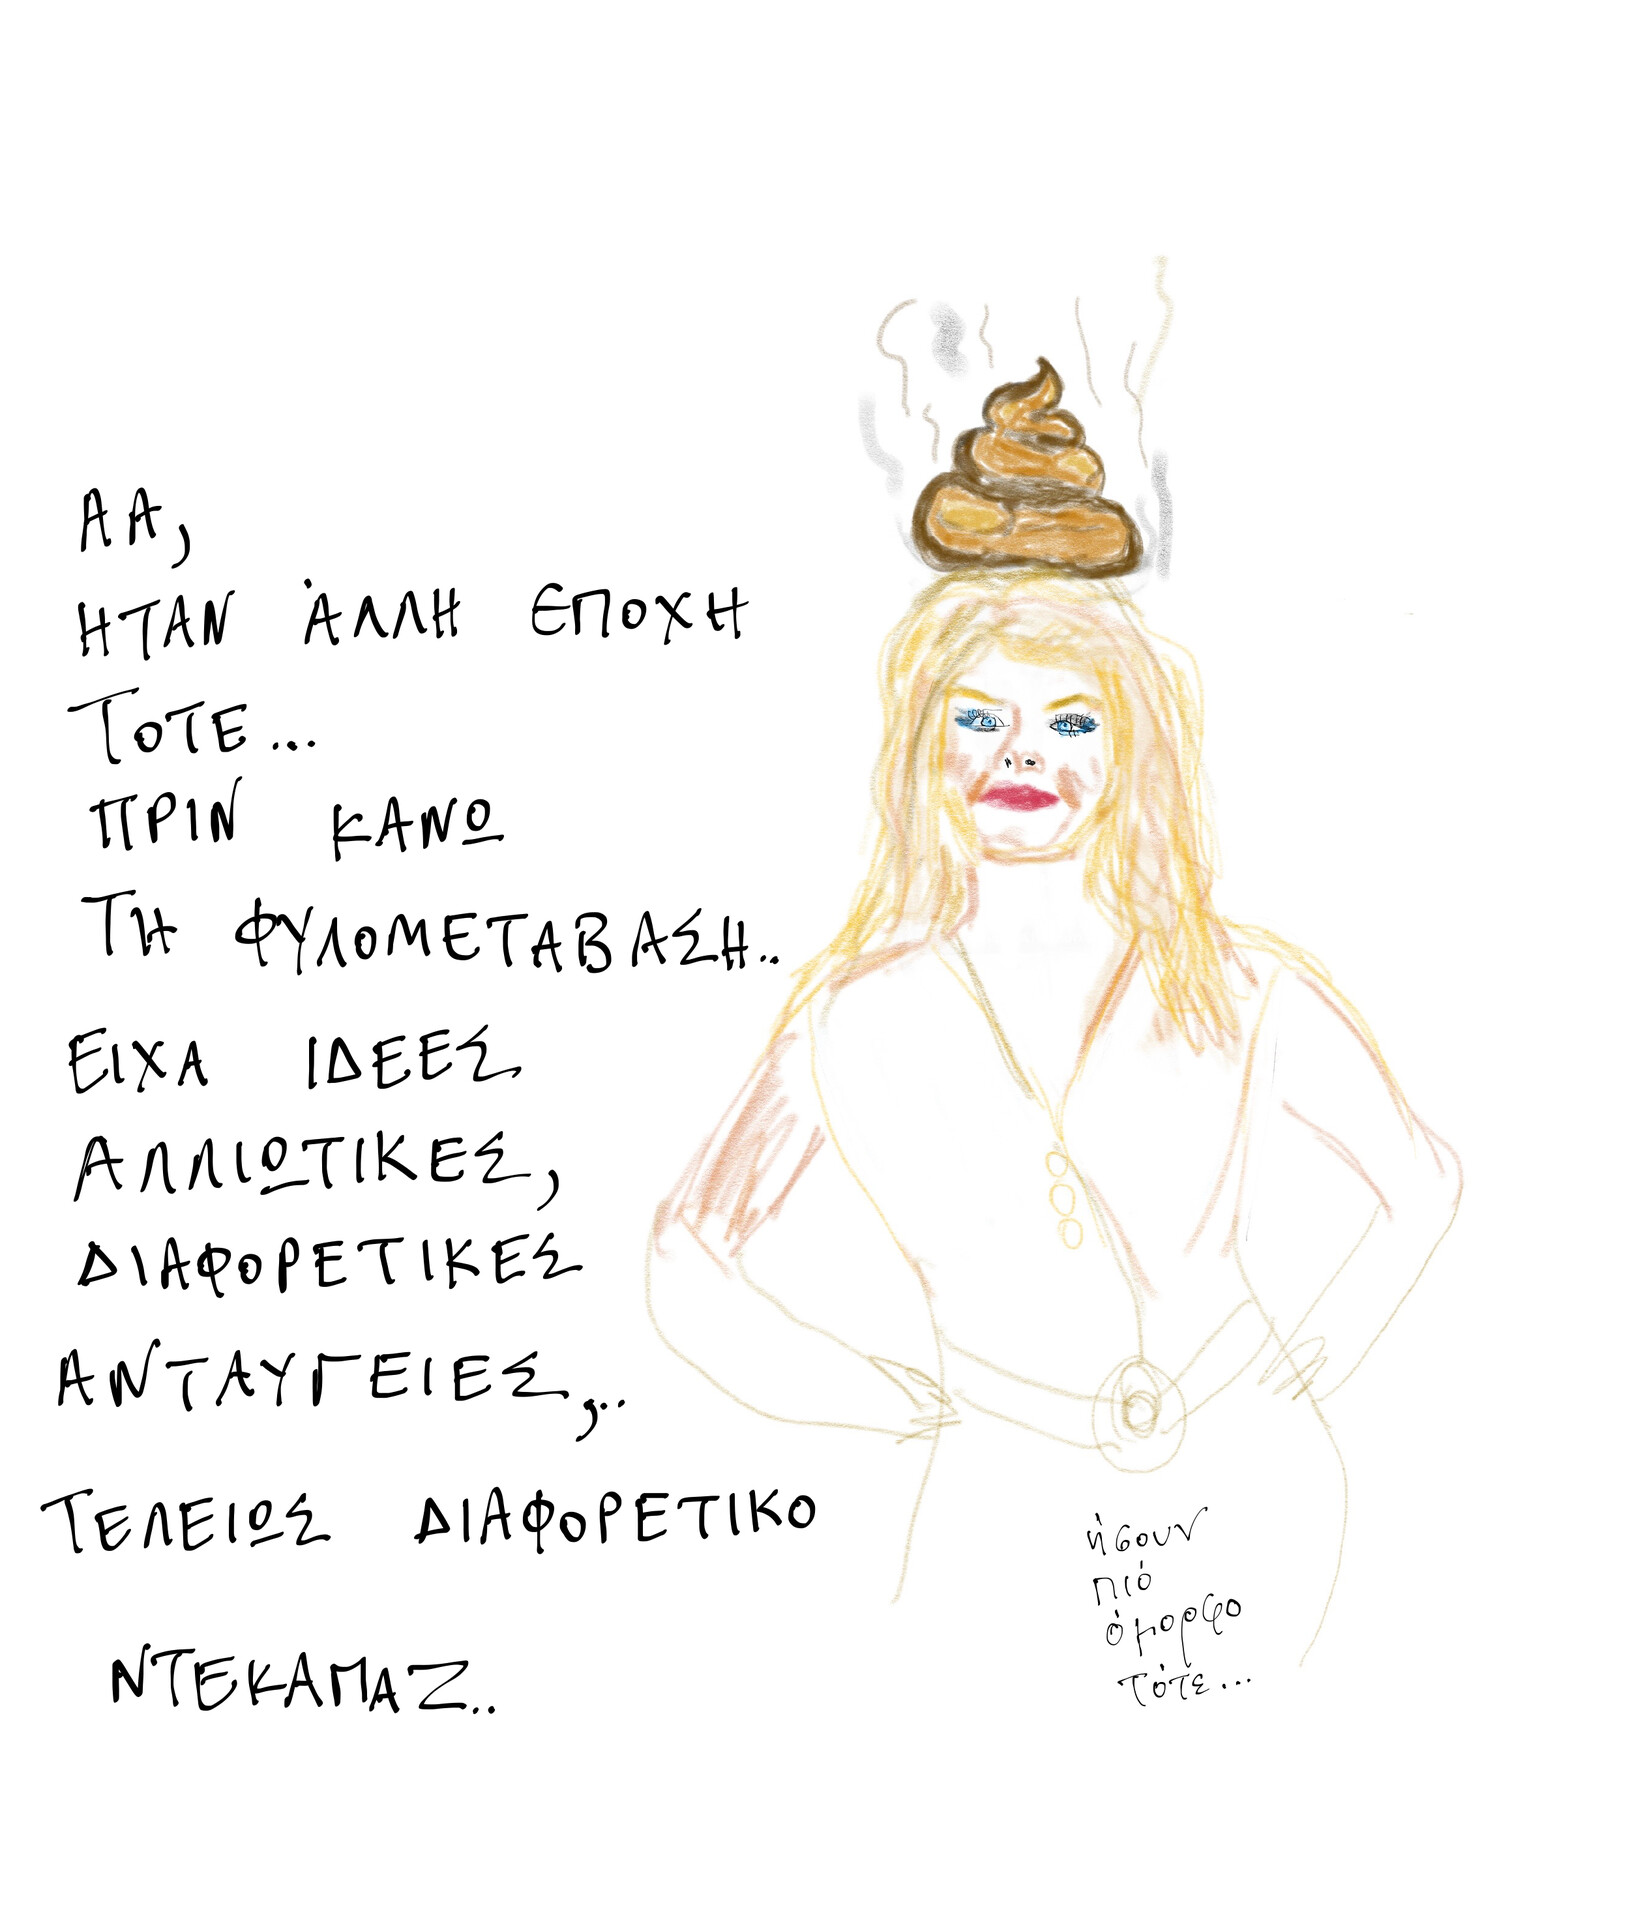 ΑΑ,
ΗΤΑΝ ΆΛΛΗ ΕΠΟΧΗ
ΤΟΤΕ...
ΠΡΙΝ ΚΑΝΩ
ΤΗ ΦΥΛΟΜΕΤΑΒΑΣΗ..
ΕΙΧΑ ΙΔΕΕΣ
ΑΛΛΙΩΤΙΚΕΣ,
ΔΙΑΦΟΡΕΤΙΚΕΣ
ΑΝΤΑΥΓΕΙΕΣ,..
ΤΕΛΕΙΩΣ ΔΙΑΦΟΡΕΤΙΚΟ
ΝΤΕΚΑΠΑΖ..
ήσουν
πιό
όμορφο
τότε...